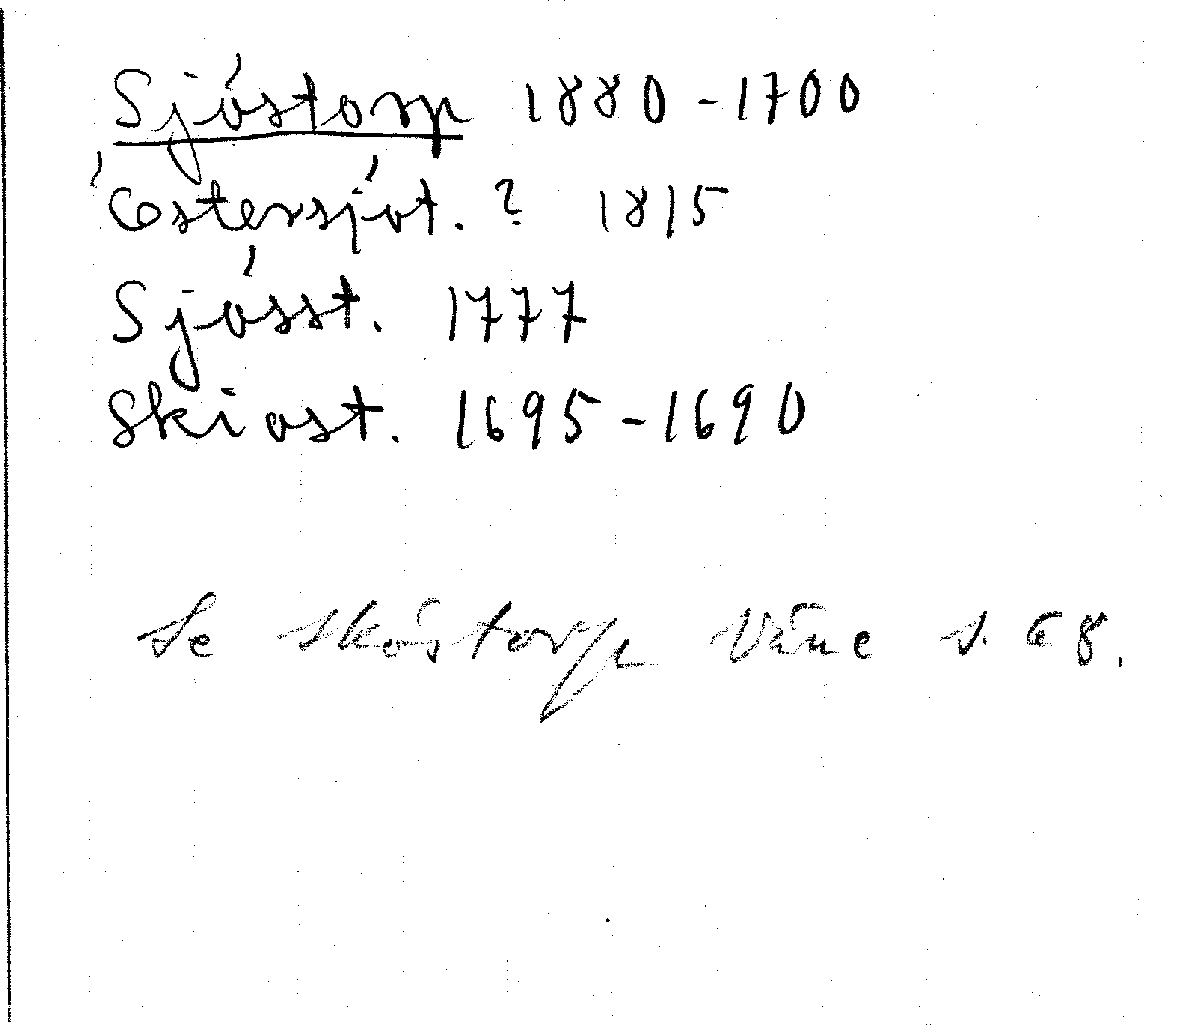 Sjöstorp 1880-1700
Östersjöt. ? 1815
Sjösst. 1777
Skiost. 1695-1690
Se Sköstorp Väne s. 68.